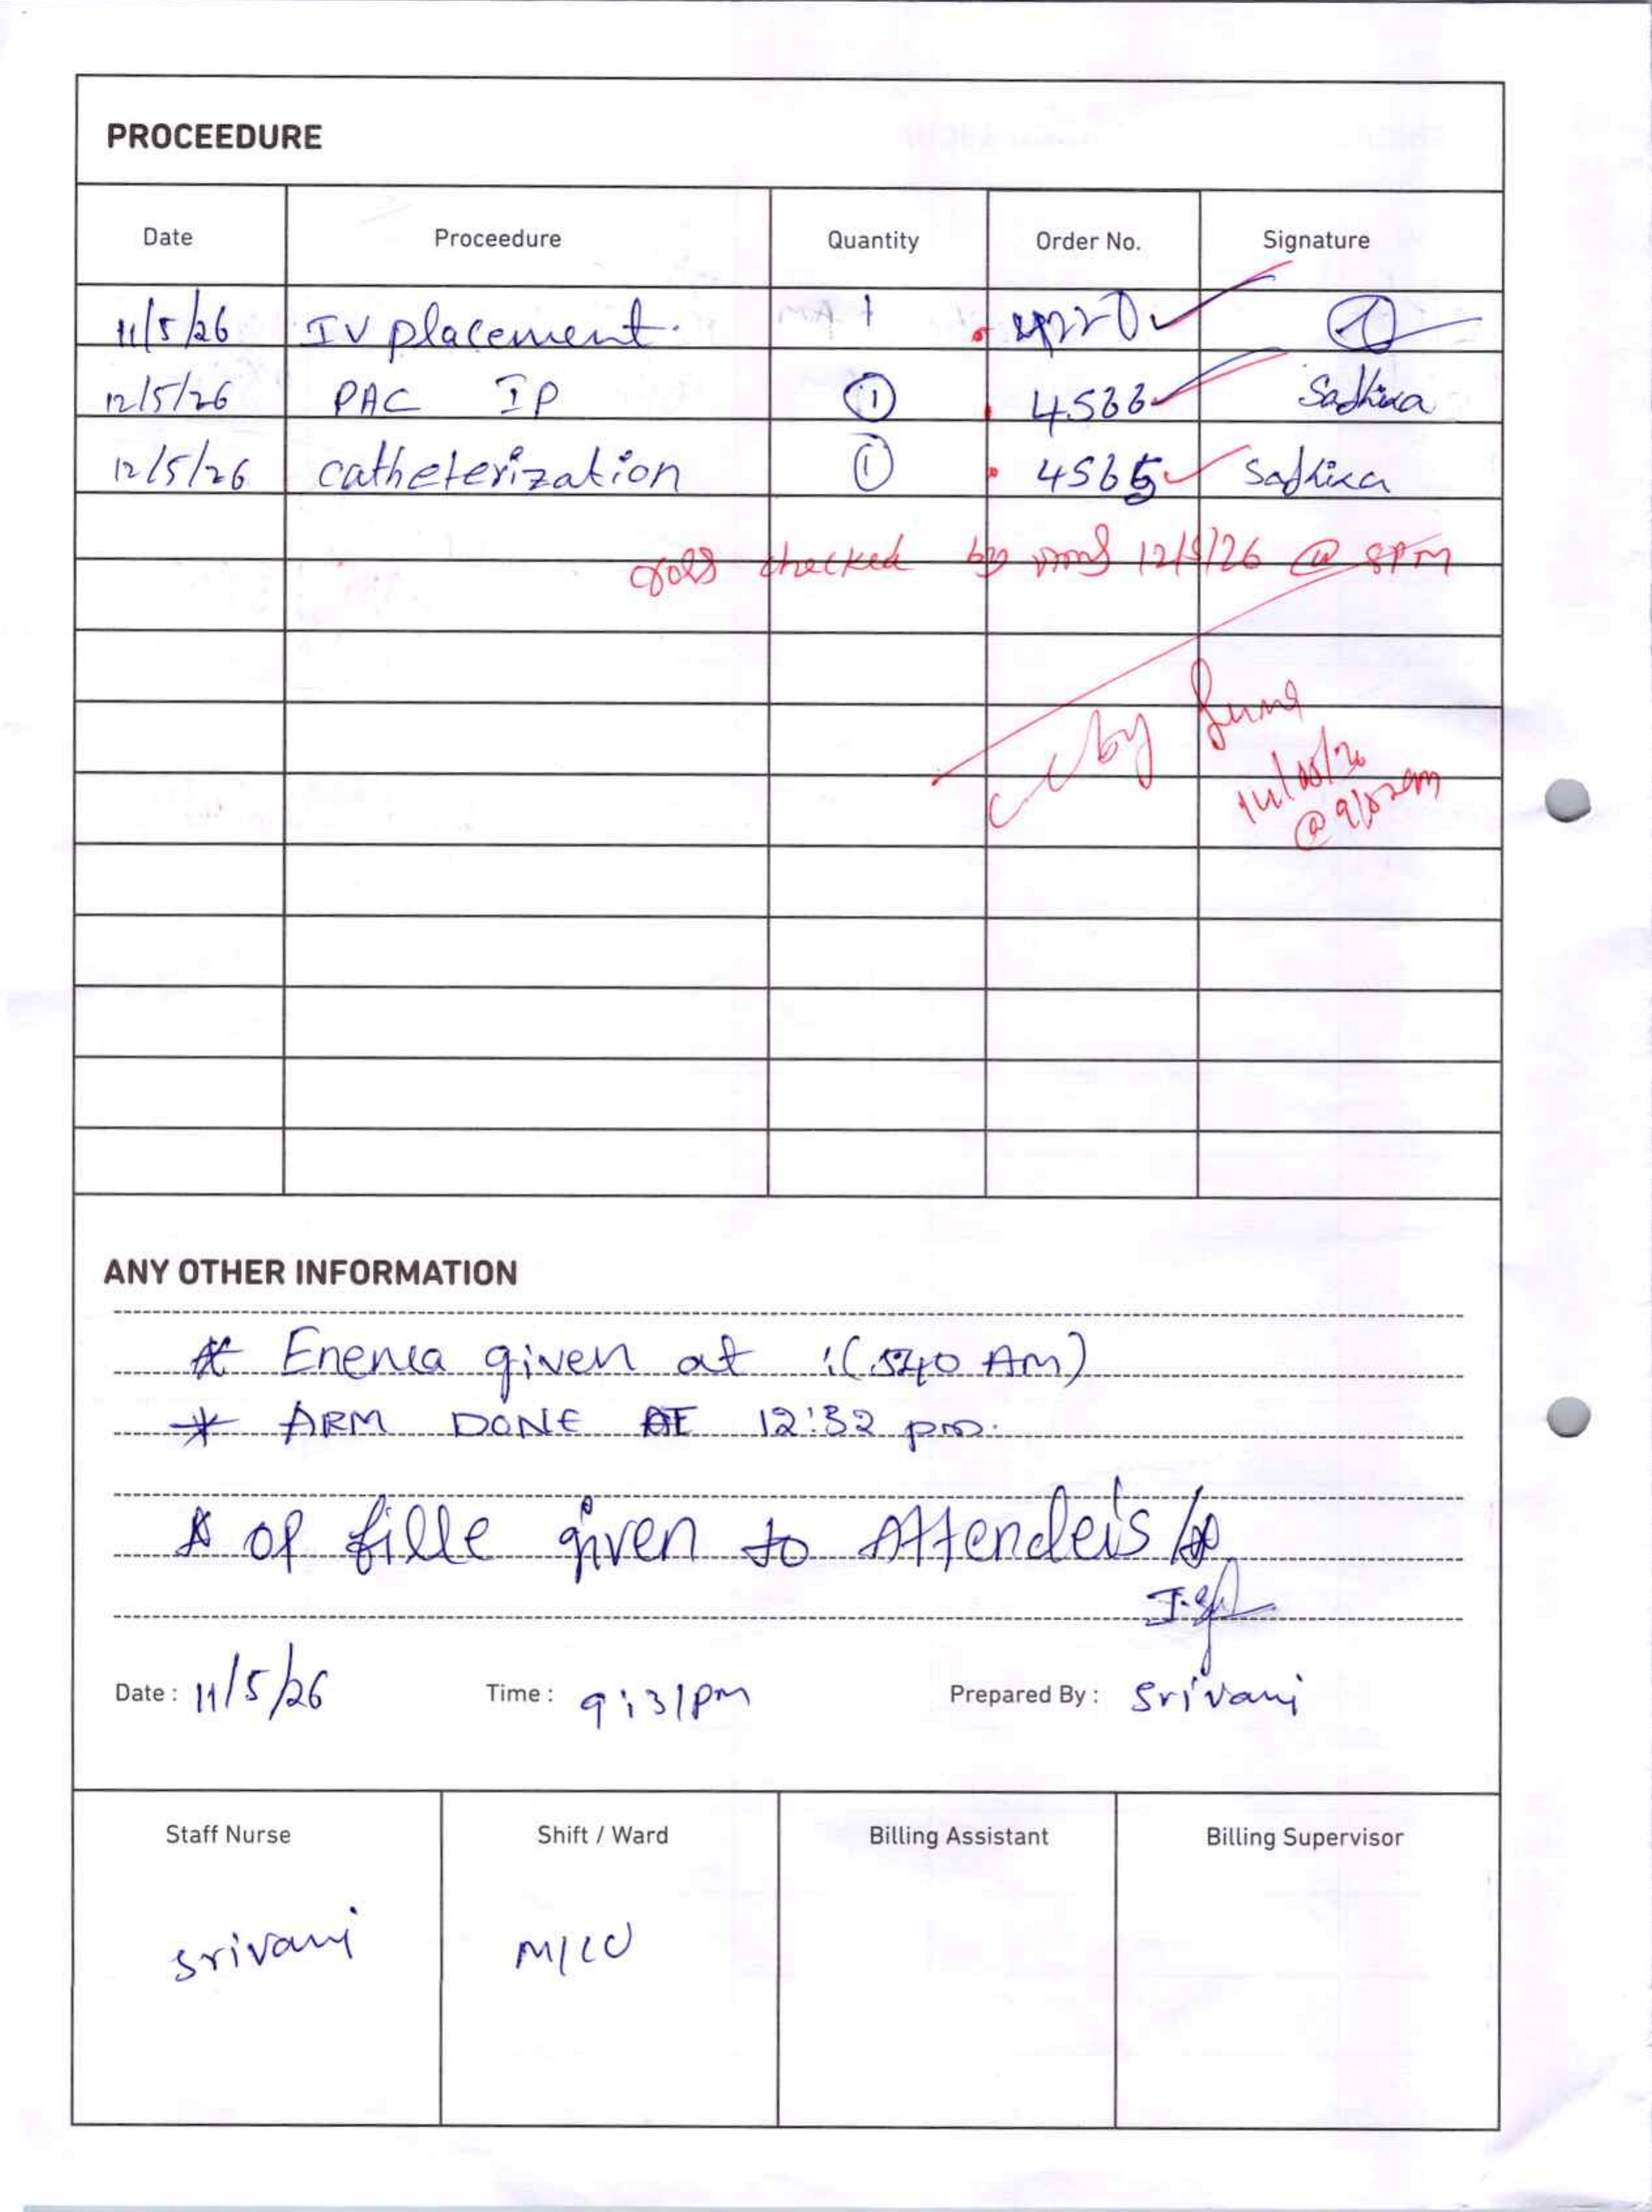 PROCEEDURE
Date Proceedure Quantity Order No. Signature
11/5/26 IV placement. 1
12/5/26 PAC IP 1 4566 Sadhika
12/5/26 catheterization 1 4565 Sadhika
checked by 12/5/26 @ 8PM
by
@
ANY OTHER INFORMATION
* Enema given at :(5:40 AM)
* ARM DONE AT 12:32 pm.
* OP fille given to Attenders
Date : 11/5/26 Time : 9:31pm Prepared By : Srivani
Staff Nurse Shift / Ward Billing Assistant Billing Supervisor
Srivani MICU